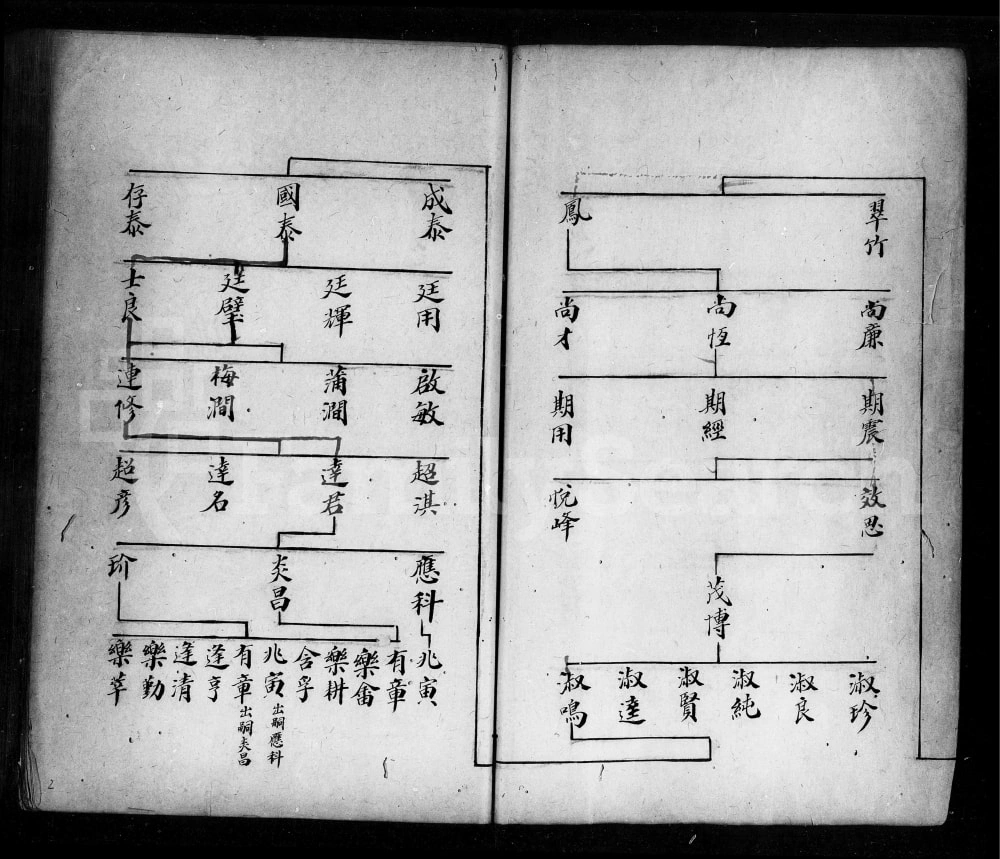 翠竹
鳳
尚廉
尚恆
尚才
期震
期經
期用
效思
悅峰
茂博
淑珍
淑良
淑純
淑賢
淑達
淑鳴
成泰
國泰
存泰
廷用
廷輝
廷璧
士良
啟敏
蒲澗
梅澗
連修
超淇
達君
達名
超彥
應科
炎昌
玠
兆寅
有章
樂畬
樂耕
含孚
兆寅 出嗣應科
有章 出嗣炎昌
逢亨
逢清
樂勤
樂莘
2